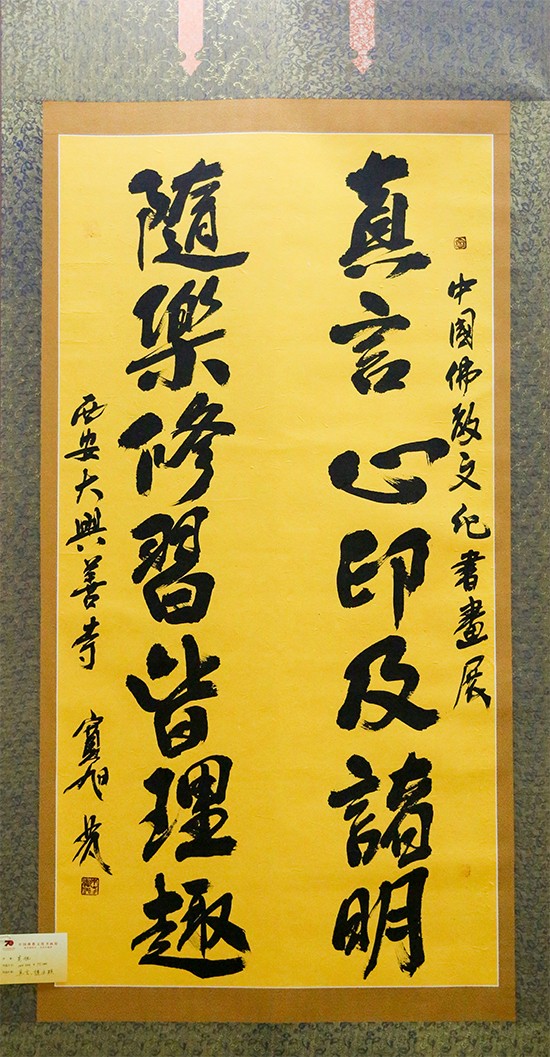 中國佛教文化書畫展
真言心印及諸明
隨樂修習皆理趣
西安大興善寺 寬旭